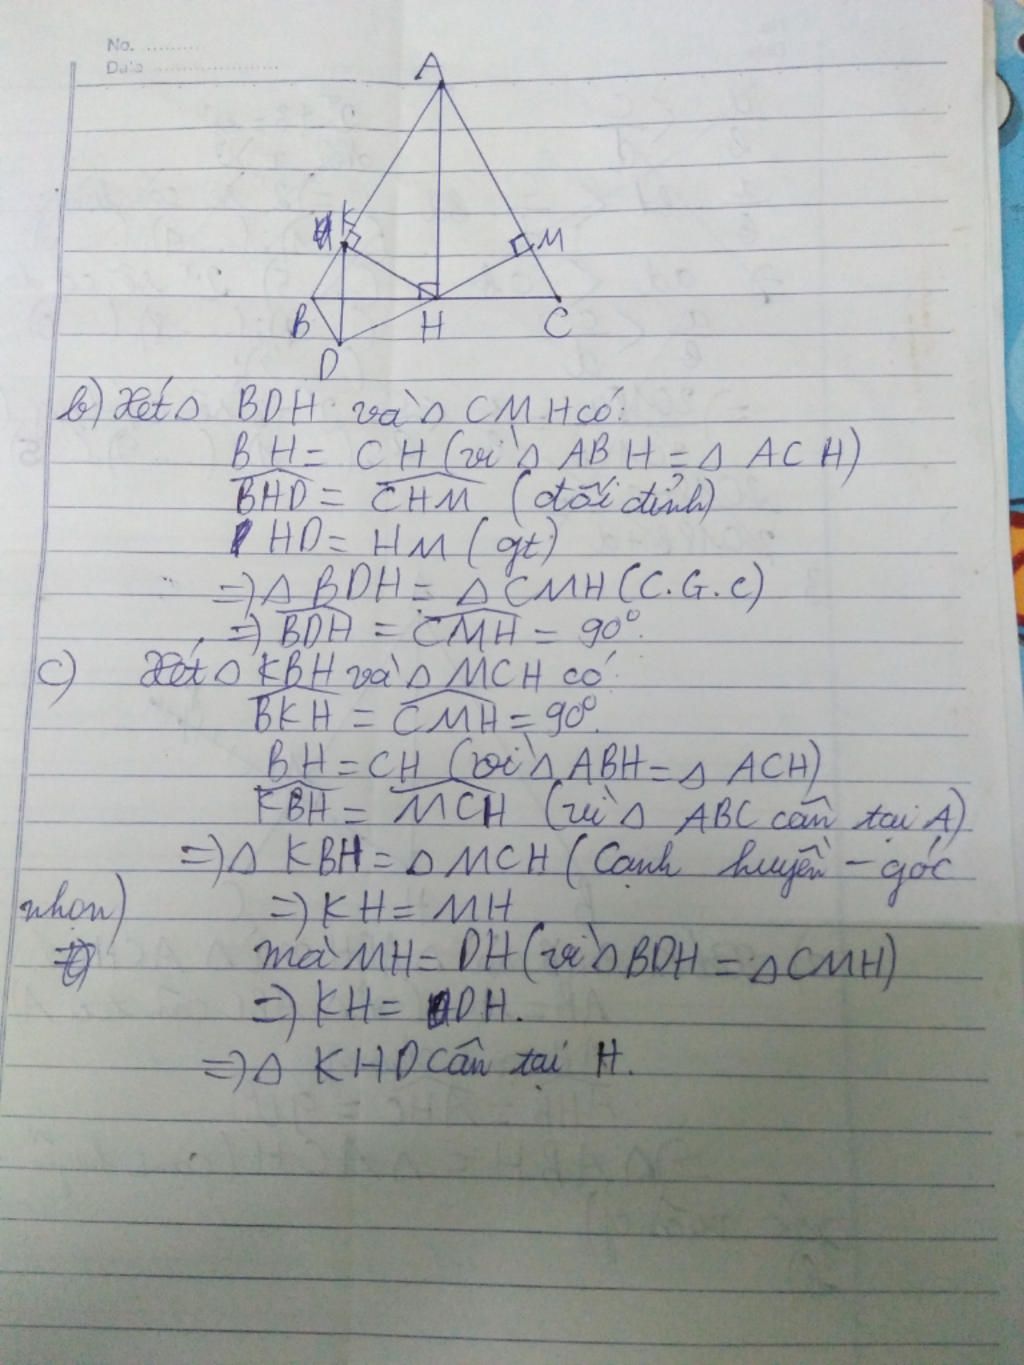 No. ..........
Date ......................
A
K
M
B
H
C
D
b) Xét △ BDH và △ CMH có:
BH = CH (vì △ ABH = △ ACH)
BHD = CHM (đối đỉnh)
HD = HM (gt)
=> △ BDH = △ CMH (C.G.C)
=> BDH = CMH = 90°.
c) Xét △ KBH và △ MCH có
BKH = CMH = 90°.
BH = CH (vì △ ABH = △ ACH)
KBH = MCH (vì △ ABC cân tại A)
=> △ KBH = △ MCH (Cạnh huyền - góc
nhọn) => KH = MH
mà MH = DH (vì △ BDH = △ CMH)
=> KH = DH.
=> △ KHD cân tại H.